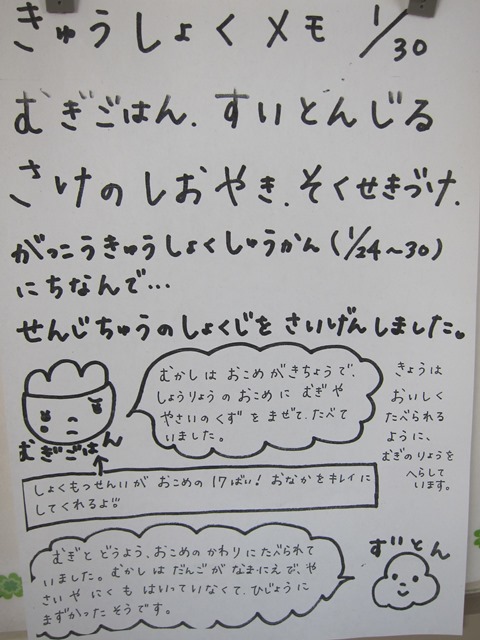 きゅうしょくメモ 1/30
むぎごはん. すいとんじる
さけのしおやき. そくせきづけ.
がっこうきゅうしょくしゅうかん(1/24~30)
にちなんで…
せんじちゅうのしょくじをさいげんしました。
むかしは おこめがきちょうで、
しょうりょうの おこめに むぎや
やさいのくずをまぜて、たべて
いました。
むぎごはん
きょうは
おいしく
たべられる
ように、
むぎのりょうを
へらして
います。
しょくもつせんいが おこめの 17ばい! おなかをキレイに
してくれるよ!!
むぎと どうよう、おこめの かわりに たべられて
いました。むかしは だんごが なまにえで、や
さいや にくも はいっていなくて、ひじょうに
まずかった そうです。
すいとん